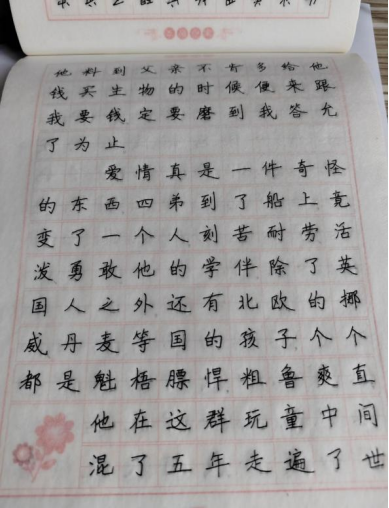 他料到父亲不肯多给他
钱买生物的时候便来跟
我要钱定要磨到我答允
了为止
爱情真是一件奇怪
的东西四弟到了船上竟
变了一个人刻苦耐劳活
泼勇敢他的学伴除了英
国人之外还有北欧的挪
威丹麦等国的孩子个个
都是魁梧膘悍粗鲁爽直
他在这群玩童中间
混了五年走遍了世